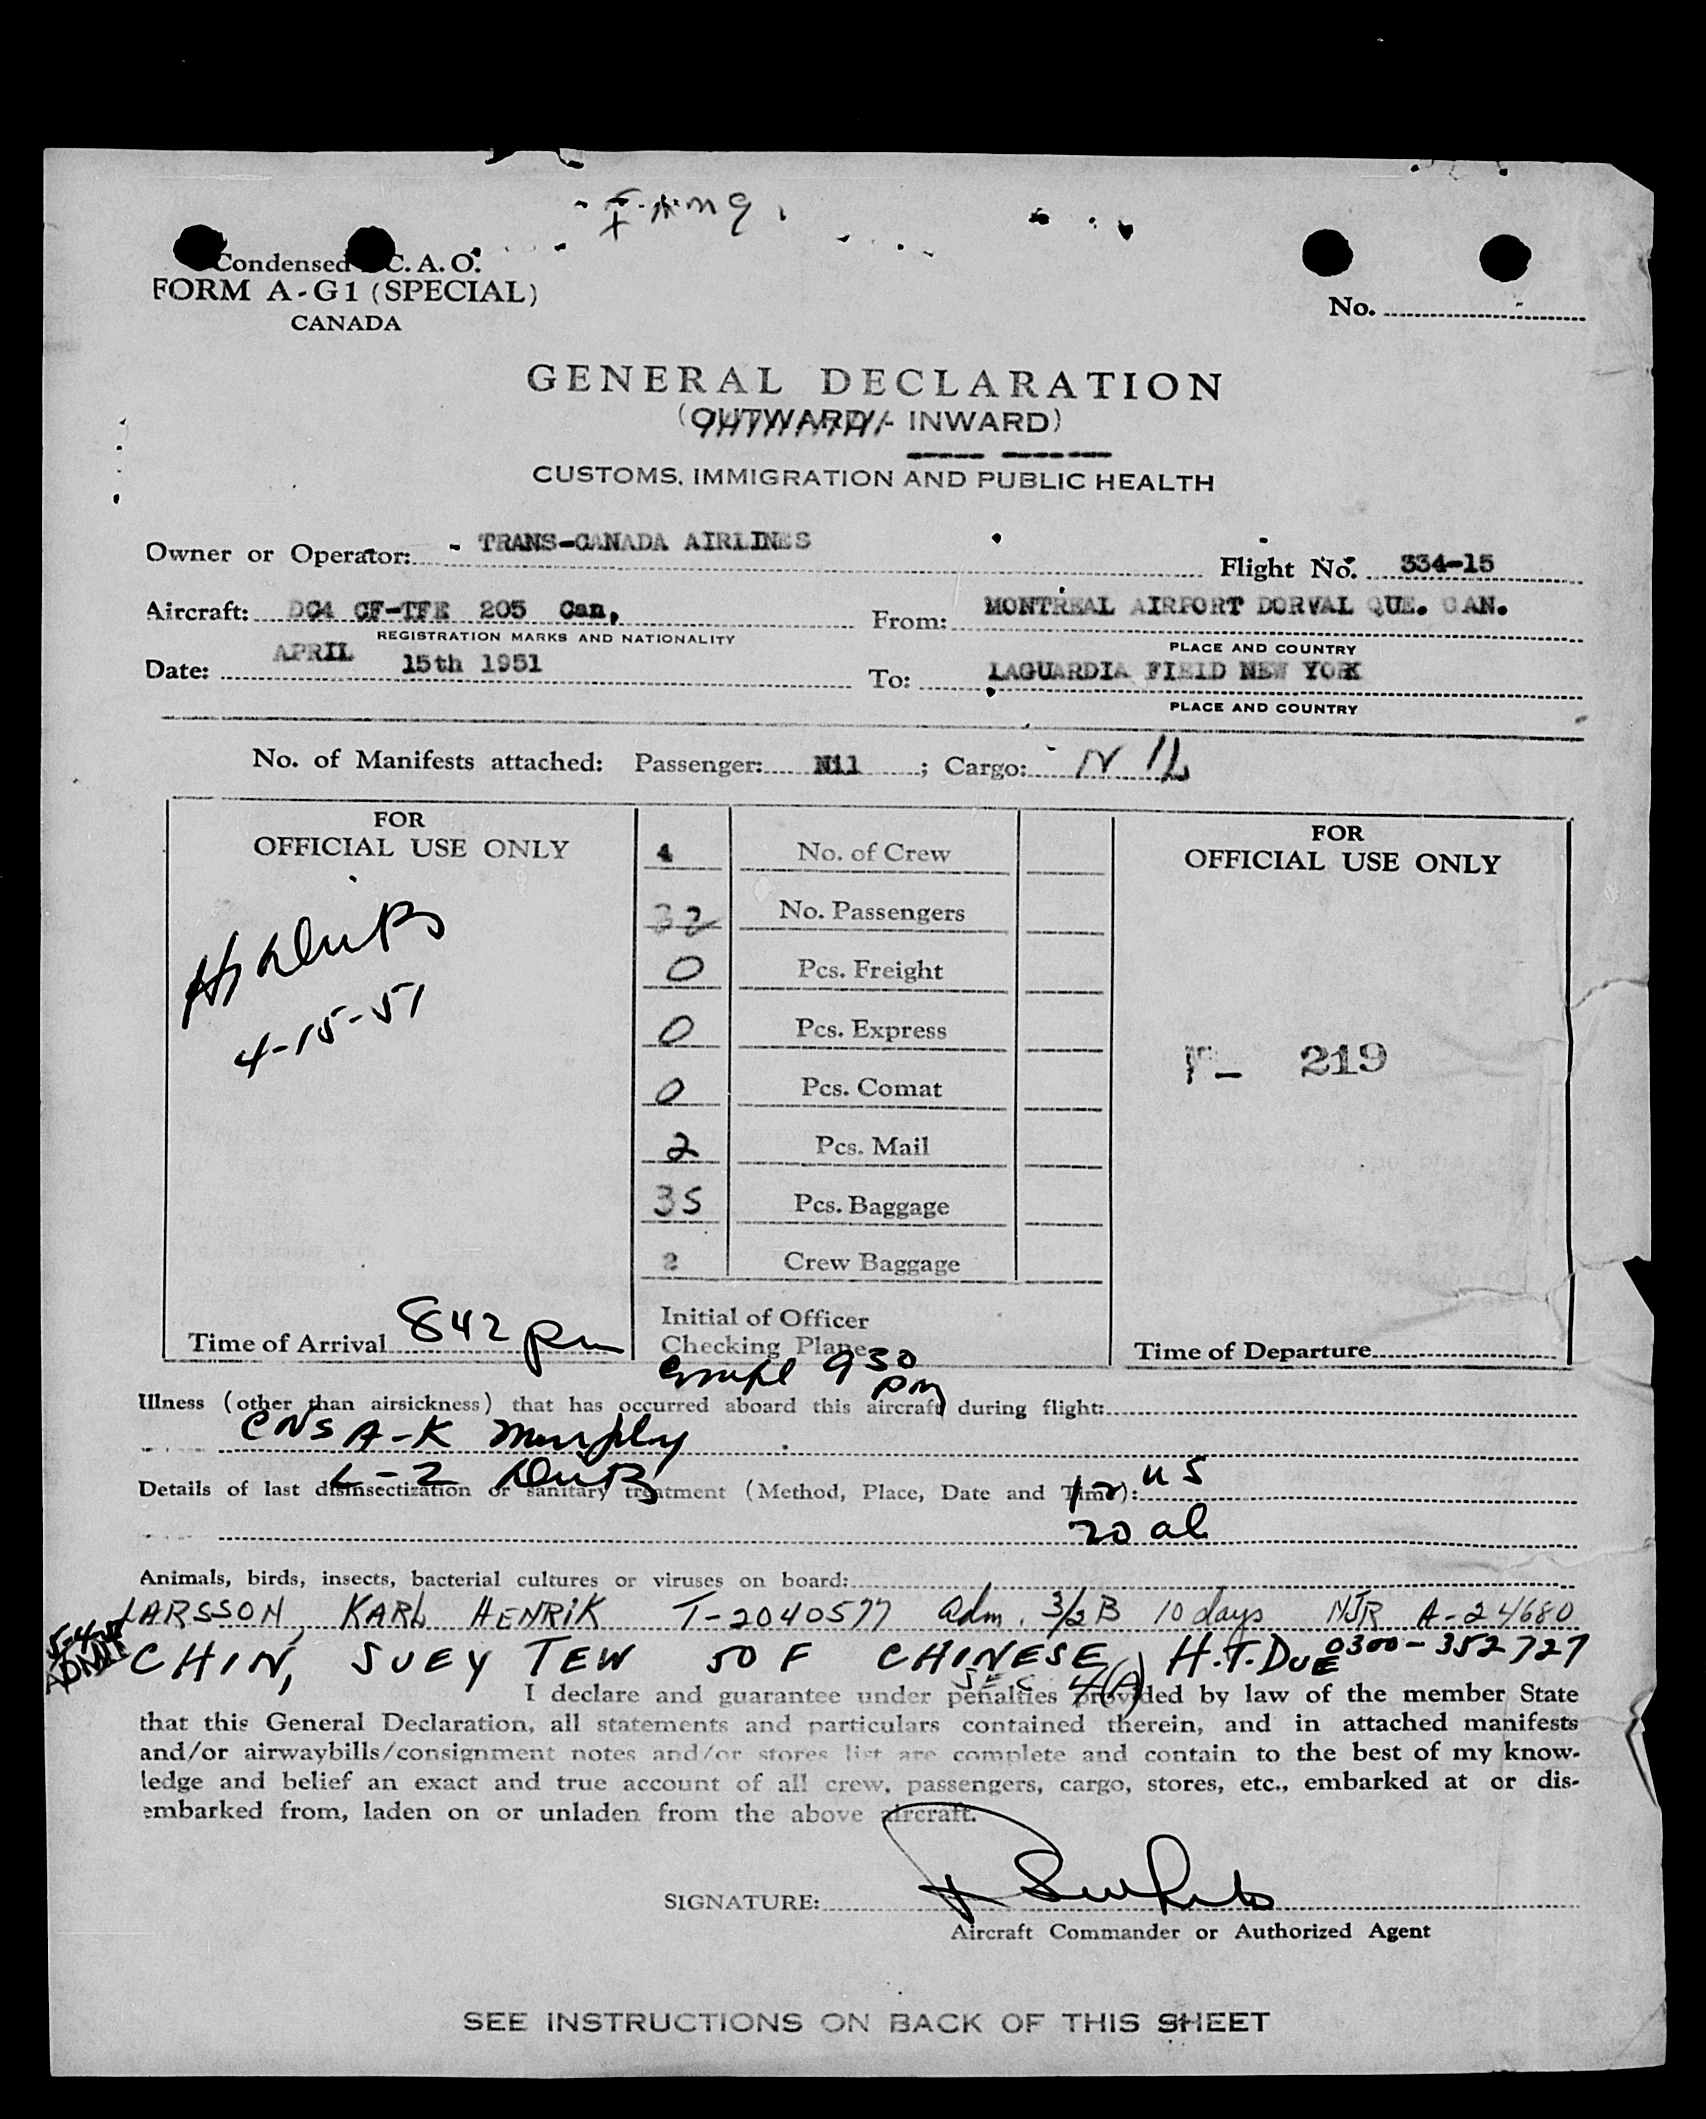 Condensed C. A. O.
FORM A-G1 (SPECIAL)
CANADA
No.
GENERAL DECLARATION
(OUTWARD/- INWARD)
CUSTOMS, IMMIGRATION AND PUBLIC HEALTH
Owner or Operator: - TRANS-CANADA AIRLINES Flight No. 334-15
Aircraft: DC4 CF-TFE 205 Can, From: MONTREAL AIRPORT DORVAL QUE. CAN.
REGISTRATION MARKS AND NATIONALITY PLACE AND COUNTRY
Date: APRIL 15th 1951 To: LAGUARDIA FIELD NEW YORK
PLACE AND COUNTRY
No. of Manifests attached: Passenger: Nil ; Cargo: NIL
FOR
OFFICIAL USE ONLY
4-15-51
Time of Arrival 842 pm
4 No. of Crew
32 No. Passengers
0 Pcs. Freight
0 Pcs. Express
0 Pcs. Comat
2 Pcs. Mail
35 Pcs. Baggage
2 Crew Baggage
Initial of Officer
Checking Plane
Compl 930
pm
FOR
OFFICIAL USE ONLY
219
Time of Departure
Illness (other than airsickness) that has occurred aboard this aircraft during flight:
CNS A-K Murphy
L-Z
Details of last disinsectization or sanitary treatment (Method, Place, Date and Time): 12 US
20 al
Animals, birds, insects, bacterial cultures or viruses on board:
LARSSON, KARL HENRIK T-2040577 adm. 3/2 B 10 days NJR A-24680
5-4-51
ADMIT
CHIN, SUEY TEW 50 F CHINESE H.T. DUE 0300-352727
SEC 4(A)
I declare and guarantee under penalties provided by law of the member State
that this General Declaration, all statements and particulars contained therein, and in attached manifests
and/or airwaybills/consignment notes and/or stores list are complete and contain to the best of my know-
ledge and belief an exact and true account of all crew, passengers, cargo, stores, etc., embarked at or dis-
embarked from, laden on or unladen from the above aircraft.
SIGNATURE:
Aircraft Commander or Authorized Agent
SEE INSTRUCTIONS ON BACK OF THIS SHEET